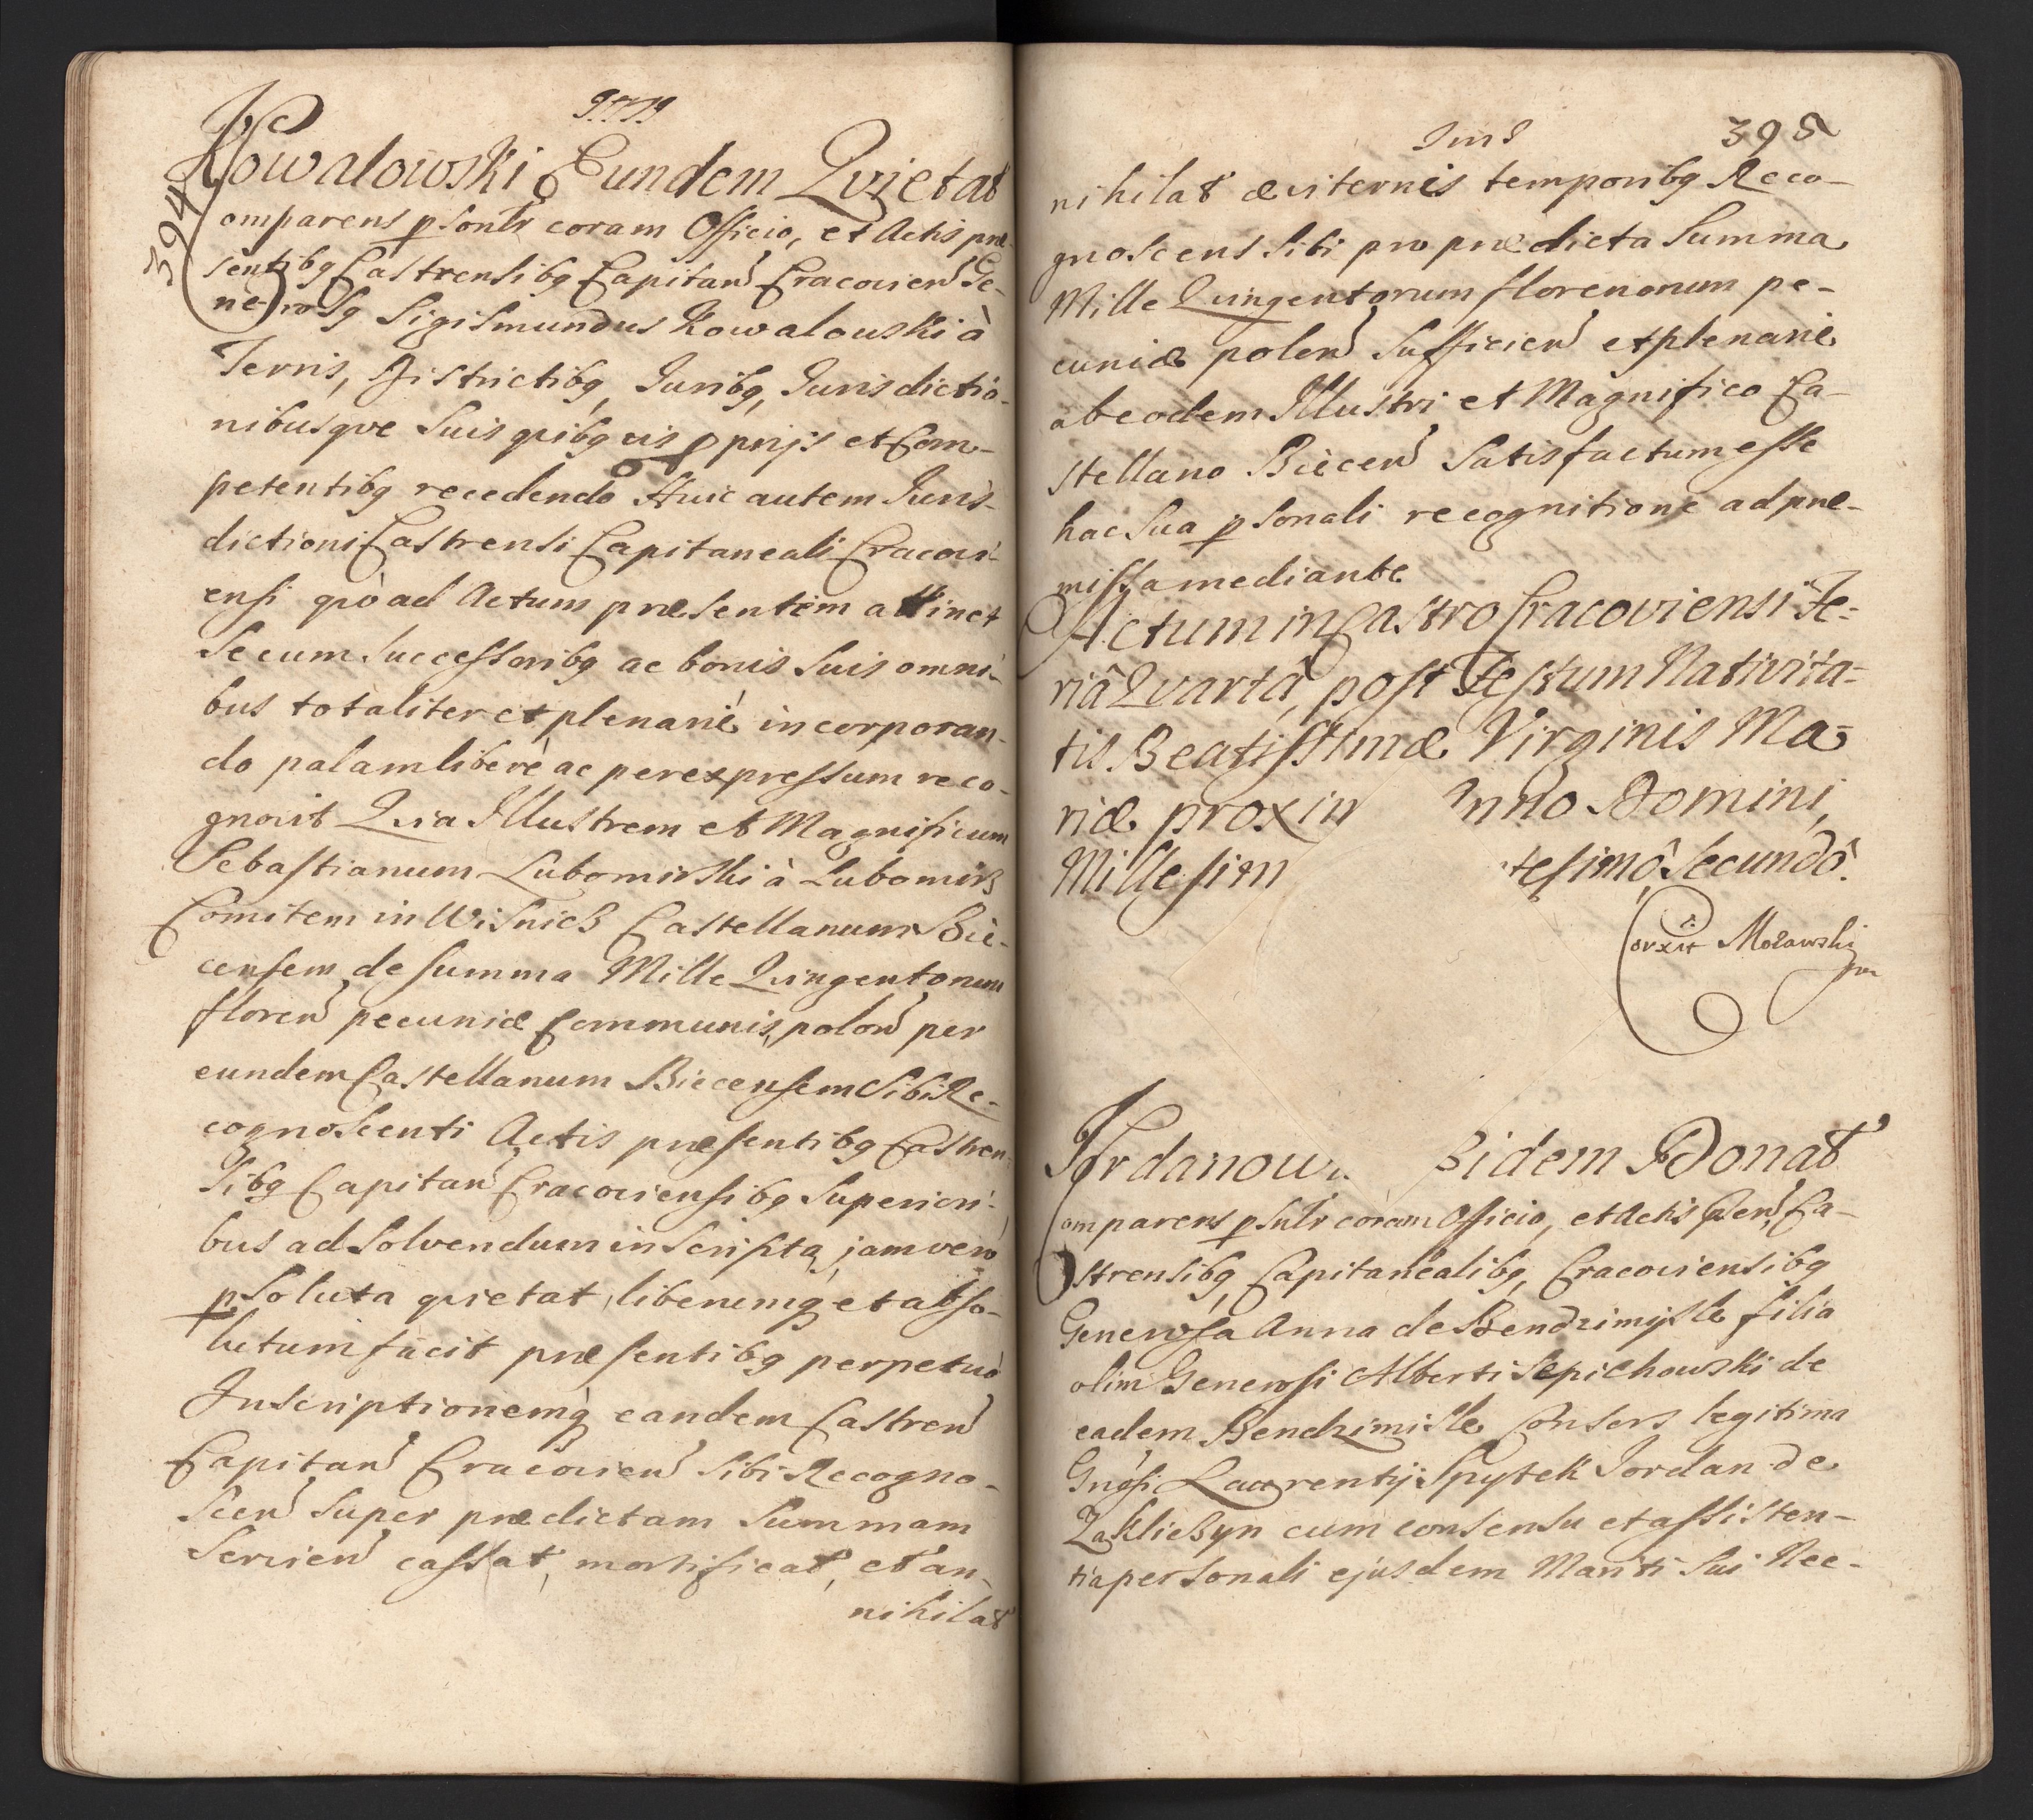 394
Kowalowski Eundem Qvietat
Comparens psontr coram Officio, et Actis præ-
sentibg Castrensibg Capitan Cracovien Ge-
nerosg Sigismundus Kowalowski à
Terris, Districtibg, Juribg, Jurisdictio-
nibusqve Suis qvibgvis pprijs et Com-
petentibg recedendo Huic autem Juris-
dictioni Castrensi Capitaneali Cracovi-
ensi qvò ad Actum præsentem attinet
Se cum Successoribg ac bonis Suis omni-
bus totaliter et plenariè incorporan-
do palam liberè ac per expressum reco-
gnovit Qvia Illustrem et Magnificum
Sebastianum Lubomirski à Lubomirz
Comitem in Wisnicz Castellanum Bie-
censem de summa Mille Qvingentorum
floren pecuniæ Communis polon per
eundem Castellanum Biecensem Sibi Re-
cognoscenti Actis præsentibg Castren-
sibg Capitan Cracoviensibg Superiori-
bus ad Solvendum inscripta, jam vero
psoluta qvietat, liberumq et abso-
lutum facit præsentibg perpetuò
Inscriptionemq eandem Castren
Capitan Cracovien Sibi Recogno-
scen Super prædictam Summam
Servien cassat, mortificat, et an-
nihilat
395
nihilat æviternis temporibg Reco-
gnoscens Sibi pro prædicta Summa
Mille Qvingentorum florenorum pe-
cuniæ polon Sufficien et plenarie
ab eodem Illustri et Magnifico Ca-
stellano Biecen Satisfactum esse
hac Sua psonali recognitione ad præ-
missa mediante
Actum in Castro Cracoviensi Fe-
riâ Qvartâ, post Festum Nativita-
tis Beatissimæ Virginis Ma-
riæ proxim nno Domini,
Millesim tesimô Secundô.
Corxit Morawski
Jordanow idem Donat
Comparens psntr coram Officio, et Actis Pen, Ca-
strensibg, Capitanealibg, Cracoviensibg
Generosa Anna de Bendzimysle filia
olim Generosi Alberti Sepichowski de
eadem Bendzimisle Consors legitima
Gnosi Laurentij Spytek Jordan de
Zakliczyn cum consensu et assisten-
tia personali ejusdem Mariti Sui Nec-